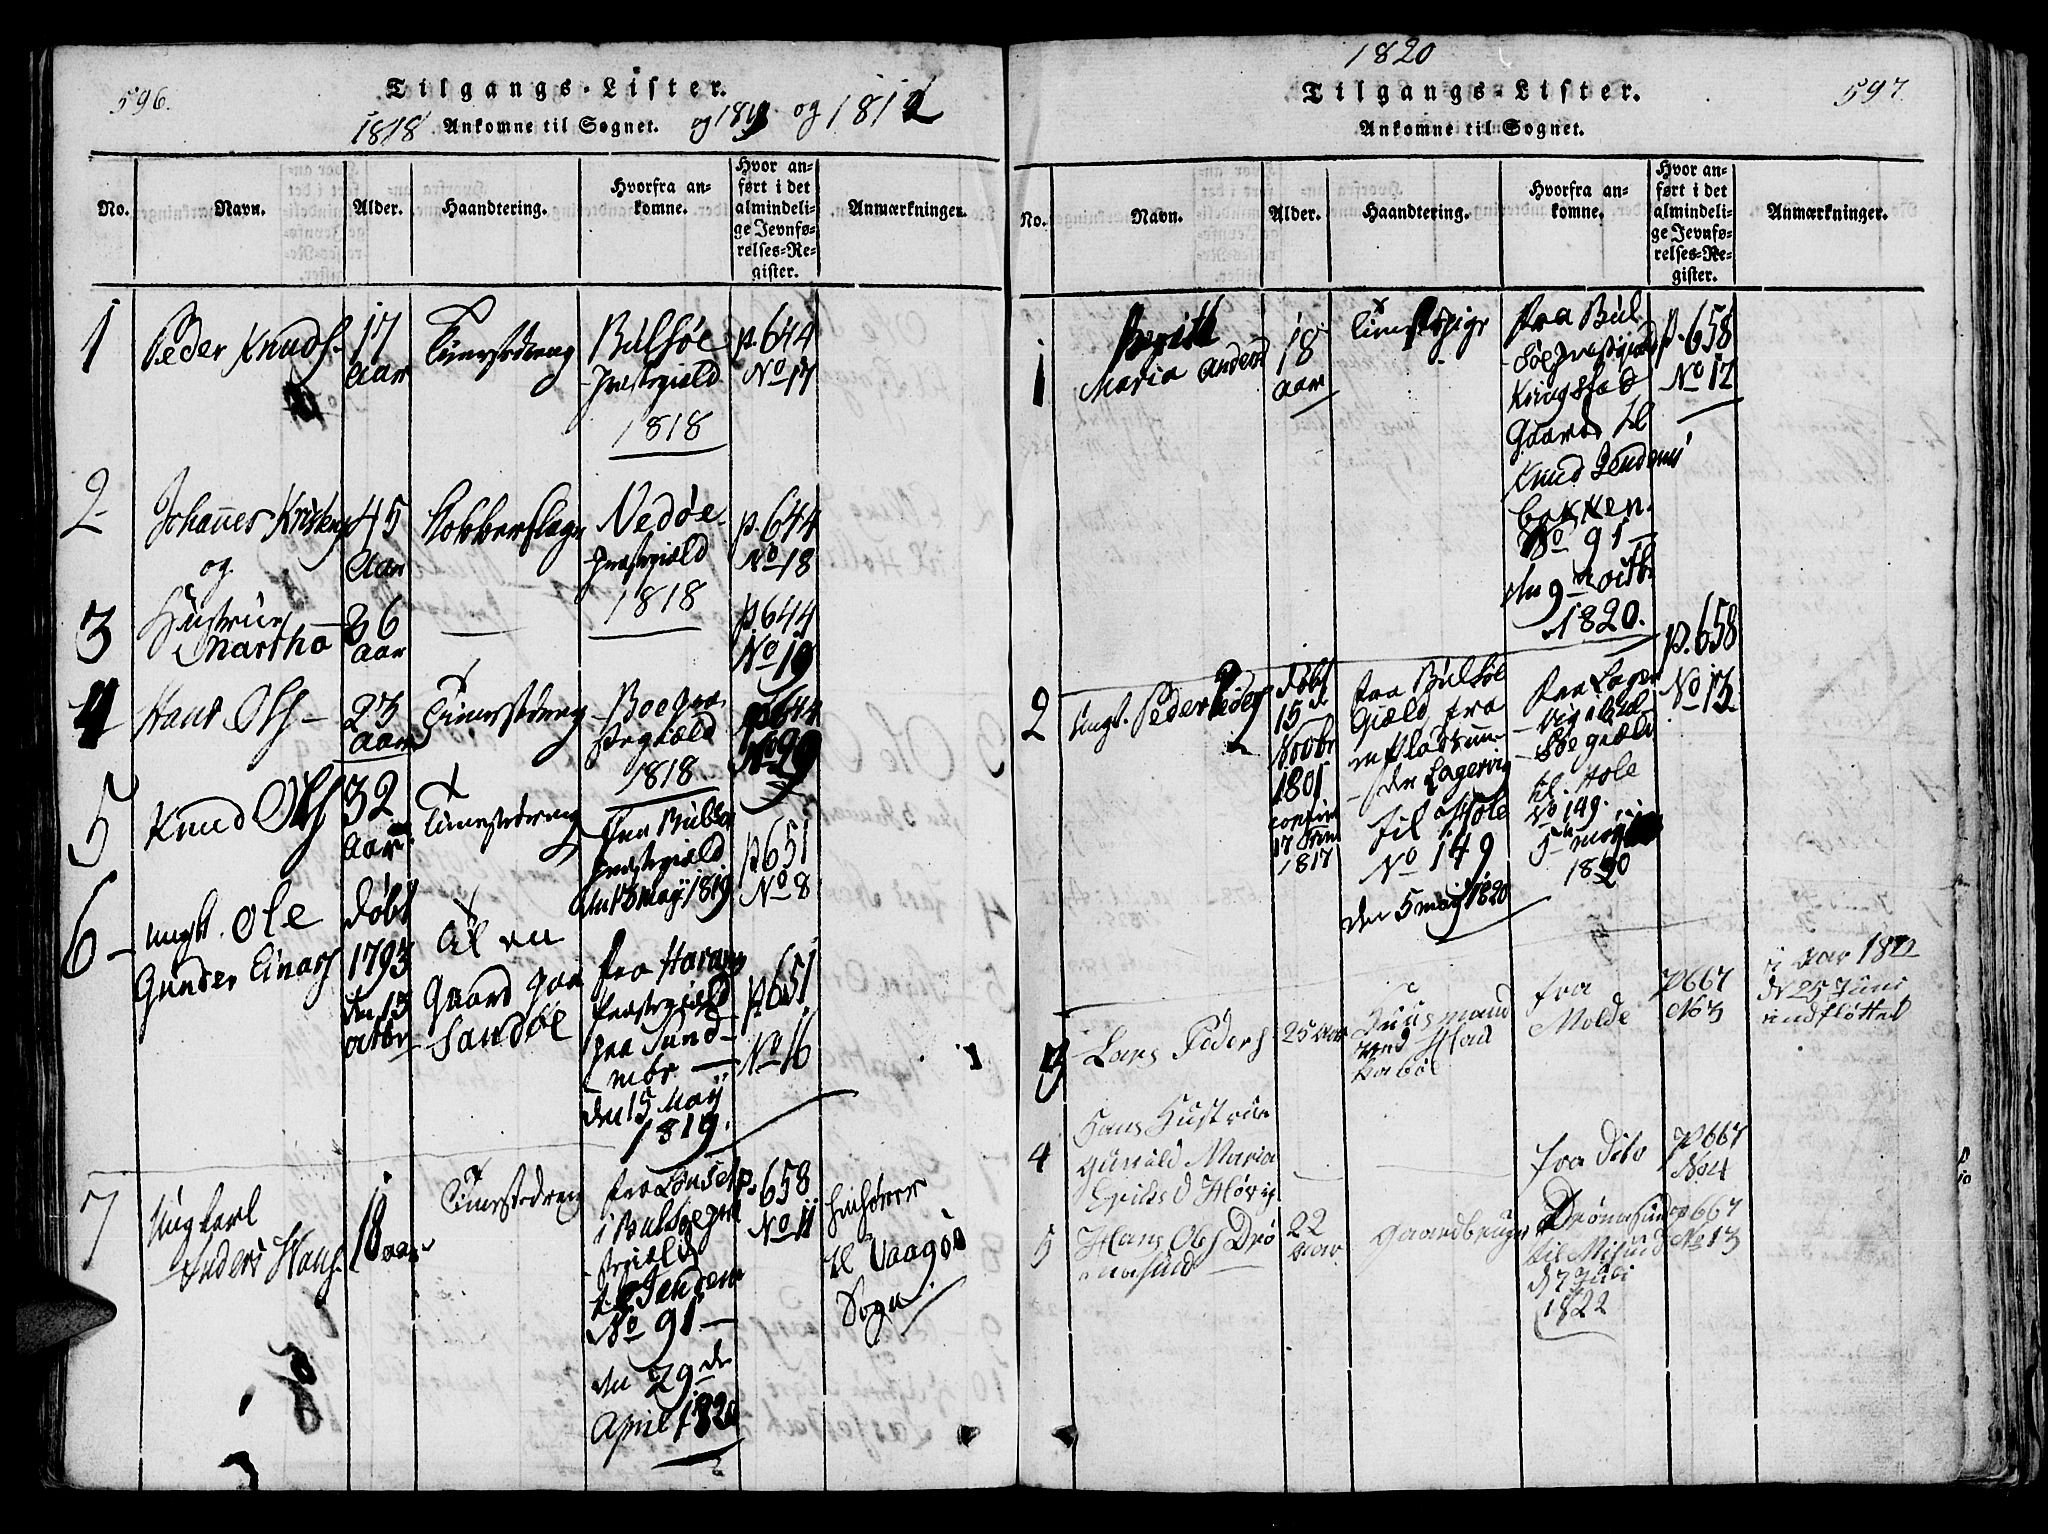 596.
Tilgangs-Lister.
1818 Ankomne til Sognet. og 1819 og 181
No.
Navn.
Alder.
Haandtering.
Hvorfra an-
komne.
Hvor an-
ført i det
almindeli-
ge Jevnfø-
relses-Re-
gister.
Anmærkninger.
1
Peder Knuds
17
aar
Tienestedreng
Bülsøe
Præstegiæld
1818
p. 644
No 17
2
Johannes
og
45
aar
Kobberslager
Vedøe
Præstegiæld
1818
p. 644
No 18
3
Hustrue
Martha
36
aar
p. 644
No 19
4
Hans Ols
23
aar
Tienestedreng
1818
p. 644
No 29
5
Knud Ols
32
aar
Tienestedreng
fra Bülsøe
Præstegiæld
den 13 Maÿ 1819
p 651
No 8
6
ungk. Ole
Gunder Einars
døbt
1793
den 13
octbr
til en
Gaard paa
Sandøe
fra Haram
Præstegiæld
paa Sund-
mør
den 15 Maÿ
1819.
p 651
No 16
7
Ungkarl
Anders Hans
18
aar
Tienestedreng
fra
i Bulsøe
til Tenden
No 91
den 29de
April 1820
p. 658
No 11
henhører
til Vaagøe
Sogn.
1820
Tilgangs-Lister.
597.
Ankomne til Sognet.
No.
Navn.
Alder.
Haandtering.
Hvorfra an-
komne.
Hvor an-
ført i det
almindeli-
ge Jevnfø-
relses-Re-
gister.
Anmærkninger.
1
Beritt
Maria Anders
18
aar
Tienestepige
fra Bül-
søe Præstegiæld
Kringstad
Gaard til
Knud Tendenes
bakken.
No 91
den 9 octbr
1820.
p. 658
No 12
2
ungk. Peder Peders
døbt
15de
Novbr
1801
confir
1817
fra Bülsøe
Giæld fra
en Plads un-
der Lagervig
til Hole
No 149
den 5 maÿ 1820
fra Lager-
vig i Bul-
søe giæld
til Hole
No 149.
5 maÿ
1820
p. 658
No 13
3
Lars Peders
25 aar
Huusmand
ved Had
fra
Molde
P 667
No 3
i aar 1822
d 25 Juni
indfløttet
4
Hans Hustrue
Gunild Maria
Eriksd Høvig
fra Dito
P 667
No 4
5
Hans Ols Drø
nnesund
22
aar
Gaardbruger
Drønnesund
til Misund
d 7 Juli
1822
P 667
No 13